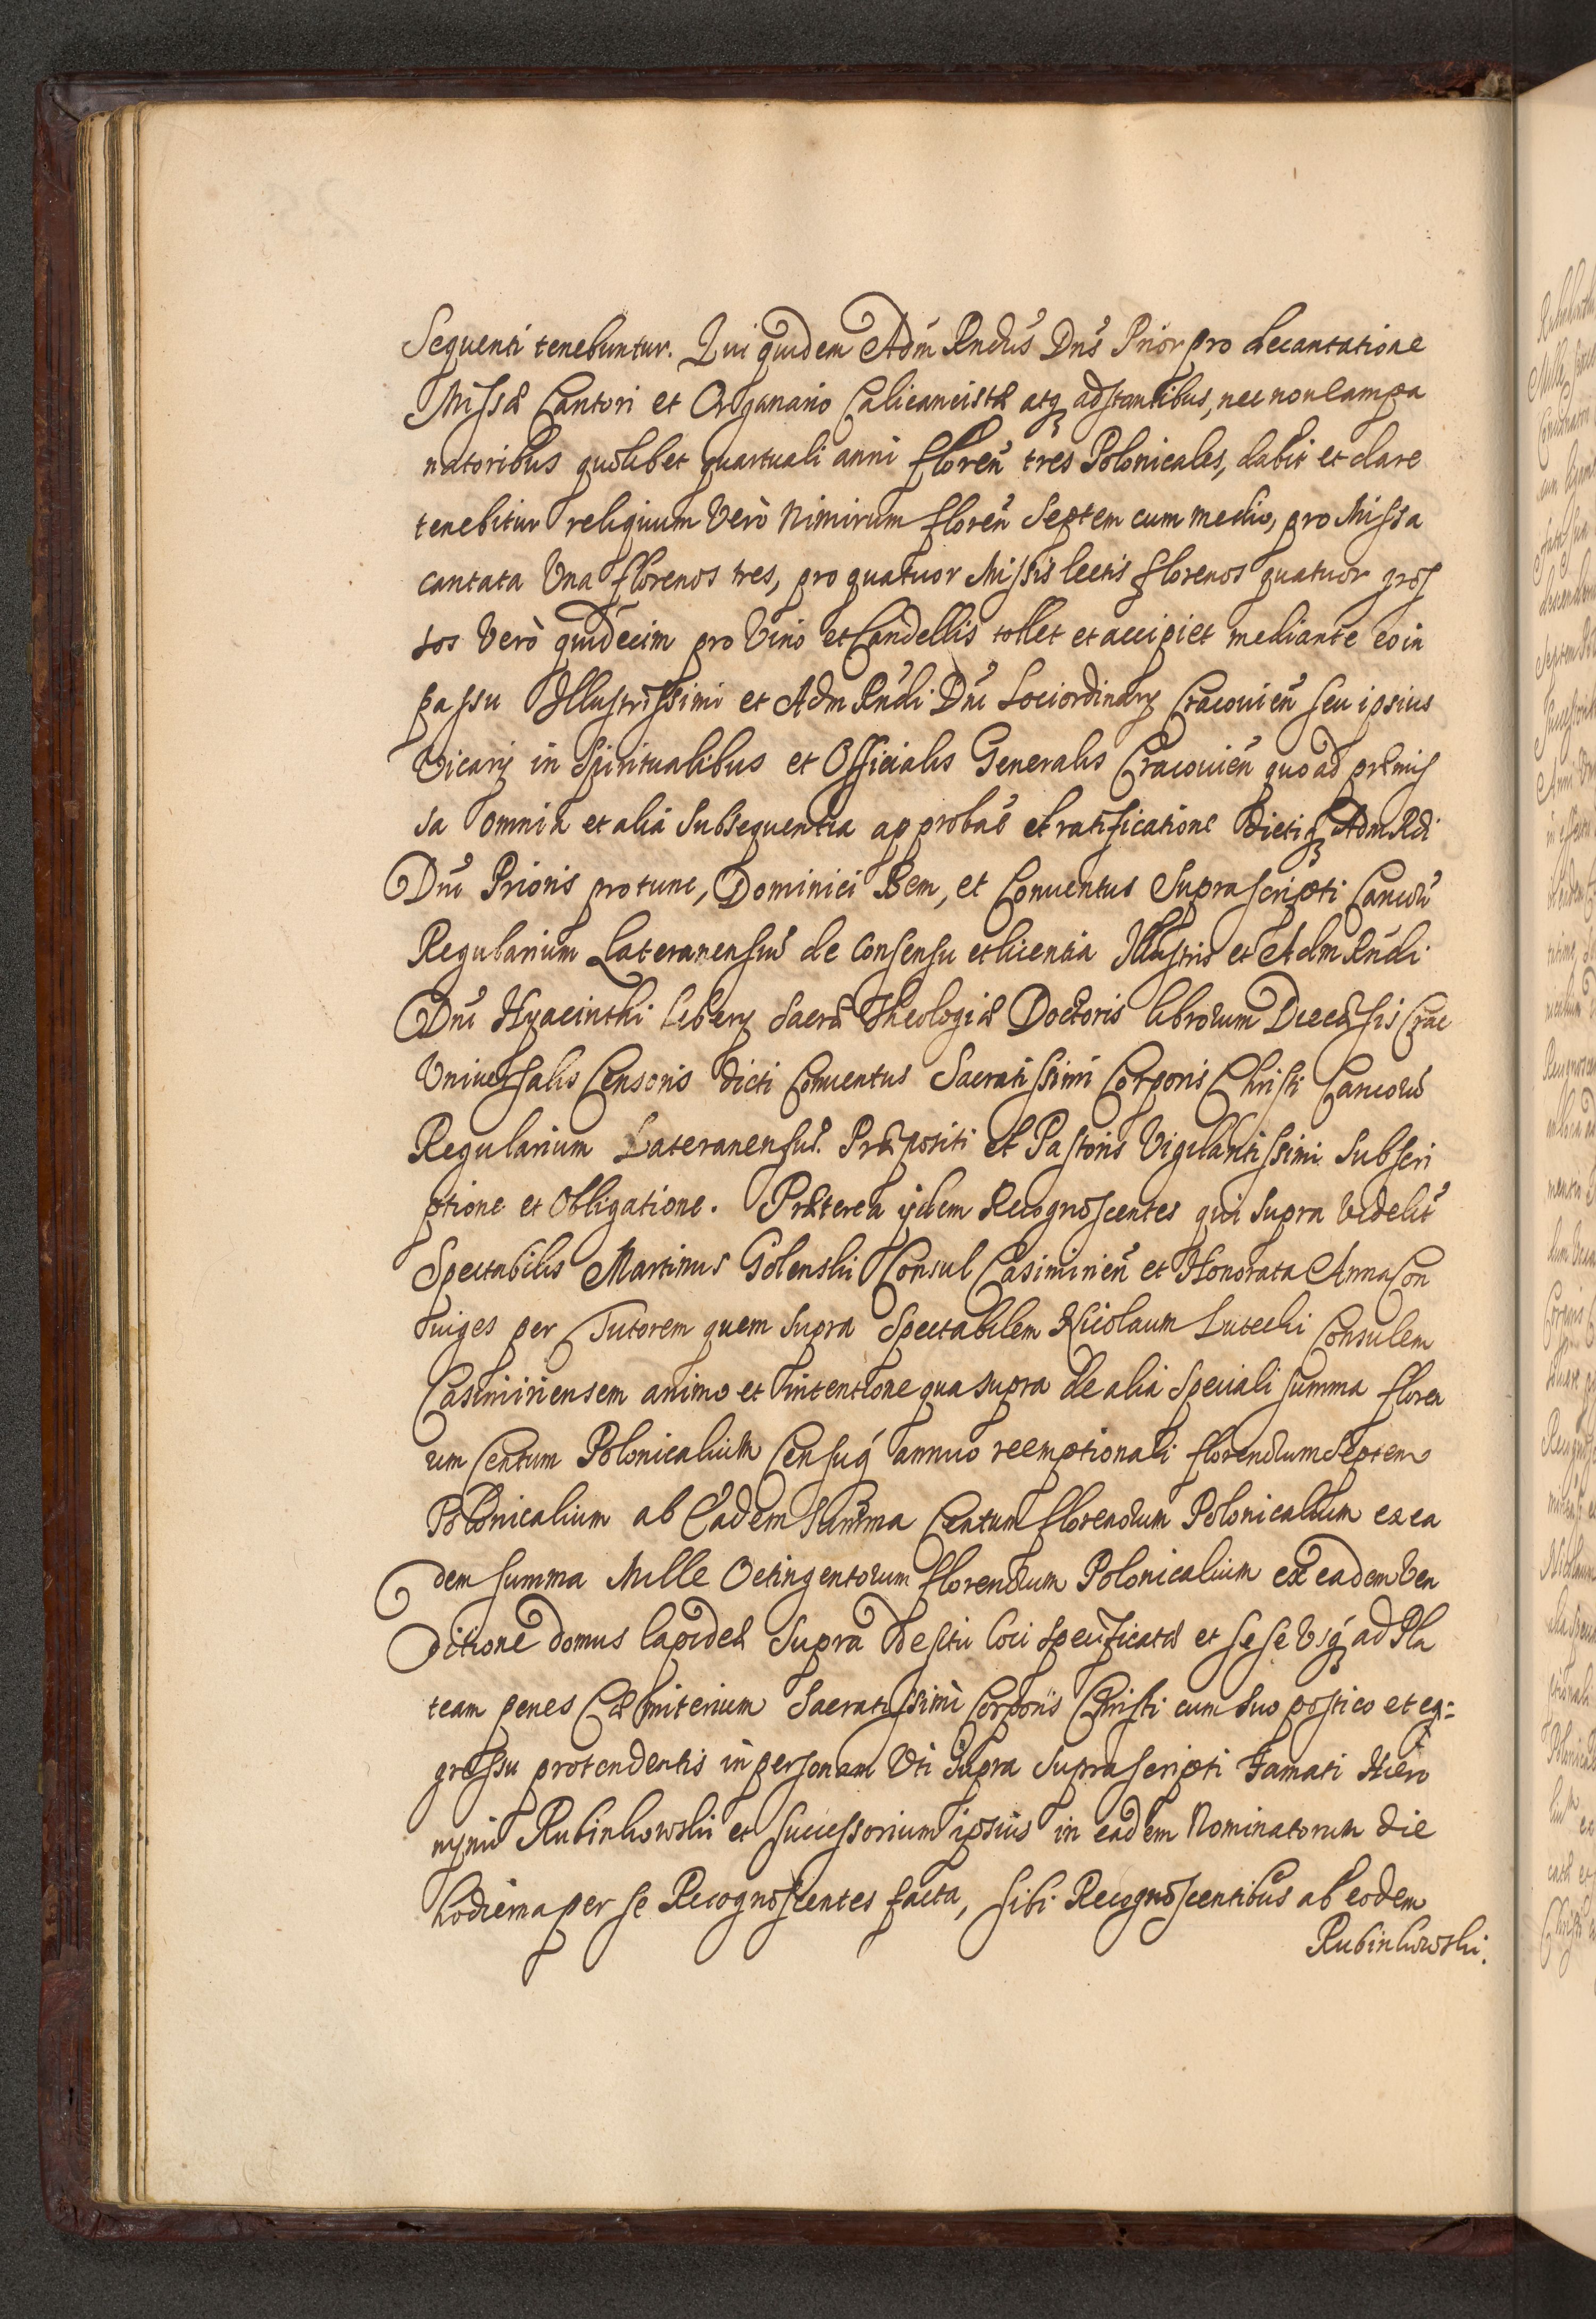 Sequenti tenebuntur. Qui quidem Adm Rndus Dns Prior pro decantatione
Missæ Cantori et Organario Calicancistæ atq adstantibus, nec non campa
natoribus quolibet quartuali anni floren tres Polonicales, dabit et dare
tenebitur reliquum Verò Nimirum floren Septem cum medio, pro Missa
cantata Una florenos tres, pro quatuor Missis lectis florenos quatuor gros
sos Verò quidecim pro Vino et Candellis tollet et accipiet mediante eo in
passu Illustrissimi et Adm Rndi Dni Lociordinarij Cracouien seu ipsius
Vicarij in Spiritualibus et Officialis Generalis Cracouien quo ad præmis
sa omnia et alia Subsequentia approbae et ratificatione Dictiq Adm Rdi
Dni Prioris protunc, Dominici Bem, et Conuentus Suprascripti Cancorū
Regularium Lateranensium de Consensu et licentia Illustris et Adm Rndi
Dni Hyacinthi Liberij Sacræ Theologiæ Doctoris librorum Diecæsis Crac
Universalis Censoris dicti Conuentus Sacratissimi Corporis Christi Cancorū
Regularium Lateranensiū. Præpositi et Pastoris Vigilantissimi Subscri
ptione et Obligatione. Præterea ijdem Recognoscentes qui Supra Videlit
Spectabilis Martinus Golenski Consul Casimirien et Honorata Anna Con
iuges per Tutorem quem Supra Spectabilem Nicolaum Lutecki Consulem
Casimiriensem animo et intentione qua supra de alia Speciali summa floren
um Centum Polonicalium Censuq annuo reemptionali florenorum Septem
Polonicalium ab Eadem Summa Centum florenorum Polonicalium ex ea
dem summa Mille Octingentorum florenorum Polonicalium ex eadem Ven
ditione domus lapideæ Supra de situ loci specificatæ et sese Usq ad Pla
team penes Cæmiterium Sacratissimi Corporis Christi cum suo postico et eg=
gressu protendentis in personam Uti Supra Suprascripti Famati Hiero
nymi Rubinkowski et successorium ipsius in eadem Nominatorum die
hodierna per se Recognoscentes facta, sibi Recognoscentibus ab eodem
Rubinkowski.